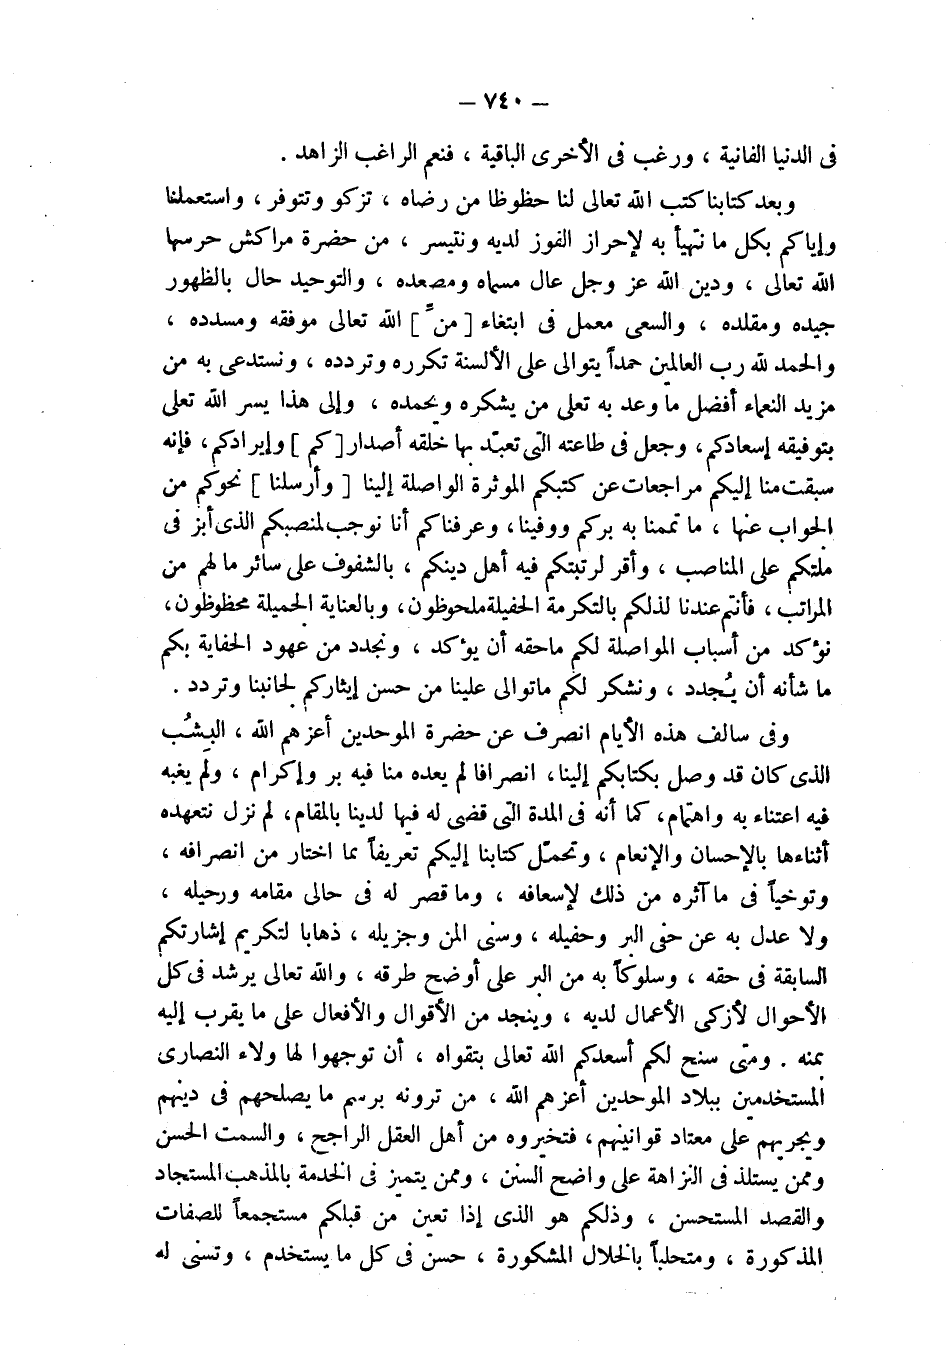 — ٧٤٠ —
فى الدنيا الفانية ، ورغب فى الأخرى الباقية ، فنعم الراغب الزاهد .
وبعد كتابنا كتب الله تعالى لنا حظوظا من رضاه ، تزكو وتتوفر ، واستعملنا
وإياكم بكل ما نتهيأ به لإحراز الفوز لديه ونتيسر ، من حضرة مراكش حرسها
الله تعالى ، ودين الله عز وجل عال مسماه ومصعده ، والتوحيد حال بالظهور
جيده ومقلده ، والسعى معمل فى ابتغاء [ من ] الله تعالى موفقه ومسدده ،
والحمد لله رب العالمين حمداً يتوالى على الألسنة تكرره وتردده ، ونستدعى به من
مزيد النعماء أفضل ما وعد به تعلى من يشكره ويحمده ، وإلى هذا يسر الله تعلى
بتوفيقه إسعادكم، وجعل فى طاعته التى تعبّد بها خلقه أصدار[ كم ] وإيرادكم، فإنه
سبقت منا إليكم مراجعات عن كتبكم الموثرة الواصلة إلينا [ وأرسلنا ] نحوكم من
الجواب عنها ، ما تممنا به بركم ووفينا، وعرفناكم أنا نوجب لمنصبكم الذى أبز فى
ملتكم على المناصب ، وأقر لرتبتكم فيه أهل دينكم ، بالشفوف على سائر ما لهم من
المراتب ، فأنتم عندنا لذلكم بالتكرمة الحفيلة ملحوظون، وبالعناية الجميلة محظوظون،
نؤكد من أسباب المواصلة لكم ماحقه أن يؤكد ، ونجدد من عهود الحفاية بكم
ما شأنه أن يُجدد ، ونشكر لكم ماتوالى علينا من حسن إيثاركم لجانبنا وتردد .
وفى سالف هذه الأيام انصرف عن حضرة الموحدين أعزهم الله ، البِشُب
الذى كان قد وصل بكتابكم إلينا، انصرافا لم يعده منا فيه بر وإكرام ، ولم يغبه
فيه اعتناء به واهتمام، كما أنه فى المدة التى قضى له فيها لدينا بالمقام، لم نزل نتعهده
أثناءها بالإحسان والإنعام ، وتحمّل كتابنا إليكم تعريفاً بما اختار من انصرافه ،
وتوخياً فى ما آثره من ذلك لإسعافه ، وما قصر له فى حالى مقامه ورحيله ،
ولا عدل به عن حفى البر وحفيله ، وسنى المن وجزيله ، ذهابا لتكريم إشارتكم
السابقة فى حقه ، وسلوكاً به من البر على أوضح طرقه ، والله تعالى يرشد فى كل
الأحوال لأزكى الأعمال لديه ، وينجد من الأقوال والأفعال على ما يقرب إليه
بمنه . ومتى سنح لكم أسعدكم الله تعالى بتقواه ، أن توجهوا لها ولاء النصارى
المستخدمين ببلاد الموحدين أعزهم الله ، من ترونه برسم ما يصلحهم فى دينهم
ويجريهم على معتاد قوانينهم، فتخيروه من أهل العقل الراجح ، والسمت الحسن
وممن يستلذ فى النزاهة على واضح السنن ، وممن يتميز فى الخدمة بالمذهب المستجاد
والقصد المستحسن ، وذلكم هو الذى إذا تعين من قبلكم مستجمعاً للصفات
المذكورة ، ومتحلباً بالخلال المشكورة ، حسن فى كل ما يستخدم ، وتسنى له